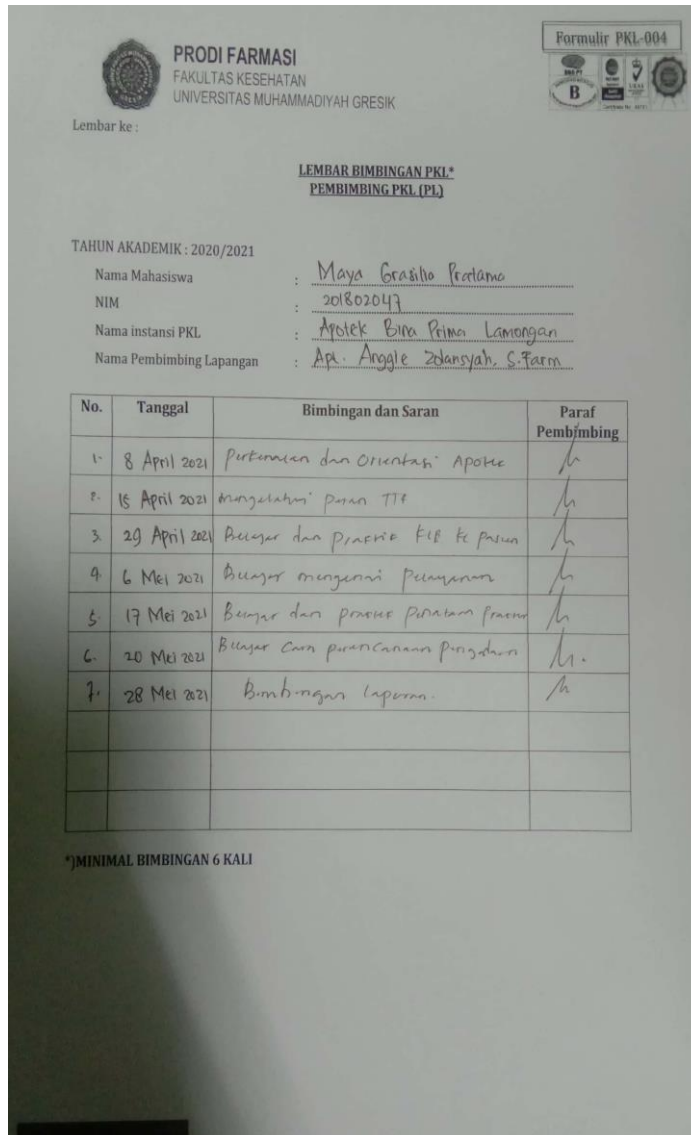 Formulir PKL-004
PRODI FARMASI
FAKULTAS KESEHATAN
UNIVERSITAS MUHAMMADIYAH GRESIK
B
Lembar ke :
LEMBAR BIMBINGAN PKL*
PEMBIMBING PKL (PL)
TAHUN AKADEMIK : 2020/2021
Nama Mahasiswa : Maya Grasilia Pratama
NIM : 201802047
Nama instansi PKL : Apotek Bina Prima Lamongan
Nama Pembimbing Lapangan : Apt. Anggie Zolansyah, S.Farm
No. Tanggal Bimbingan dan Saran Paraf Pembimbing
1. 8 April 2021 Perkenalan dan Orientasi Apotek
2. 15 April 2021 mengetahui peran TTK
3. 29 April 2021 Belajar dan Praktik KIE ke pasien
4. 6 Mei 2021 Belajar mengenai Pelayanan
5. 17 Mei 2021 Belajar dan praktek
6. 20 Mei 2021 Belajar Cara perencanaan Pengadaan
7. 28 Mei 2021 Bimbingan laporan.
*)MINIMAL BIMBINGAN 6 KALI